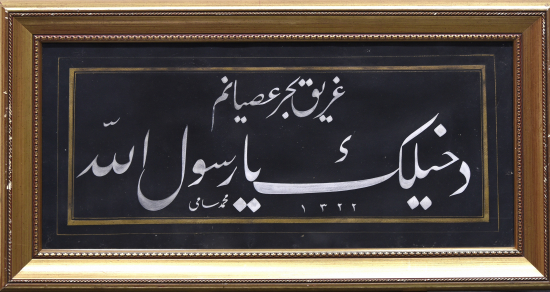 غريق بحر عصيانم
دخيلك يا رسول الله
محمد سامى ١٣٢٢